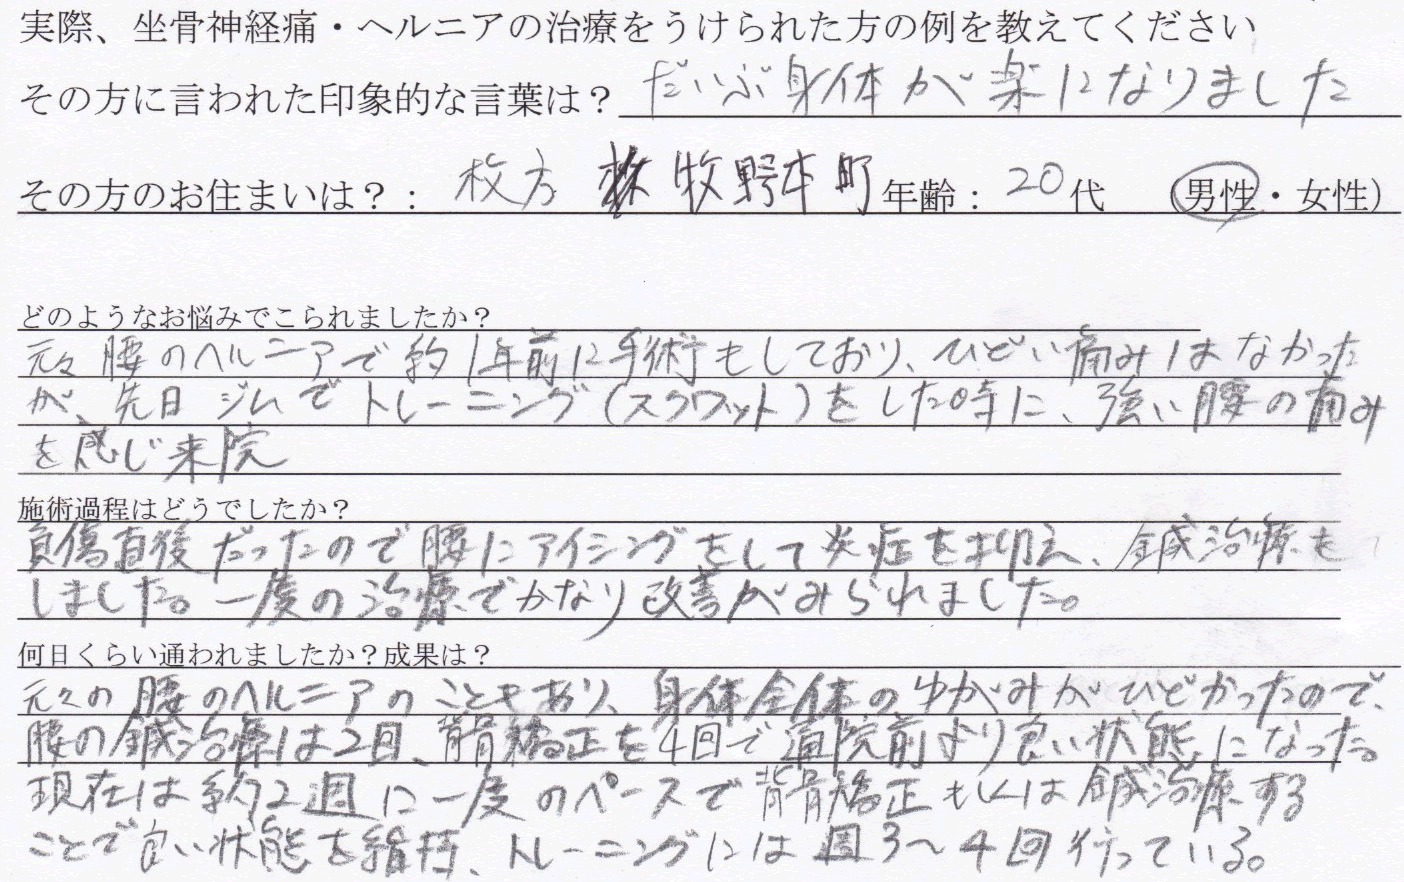 実際、坐骨神経痛・ヘルニアの治療をうけられた方の例を教えてください
その方に言われた印象的な言葉は？ だいぶ身体が楽になりました
その方のお住まいは？： 枚方 牧野本町 年齢： 20代 （男性・女性）
どのようなお悩みでこられましたか？
元々腰のヘルニアで約1年前に手術もしており、ひどい痛みはなかった
が、先日ジムでトレーニング(スクワット)をした時に、強い腰の痛み
を感じ来院
施術過程はどうでしたか？
負傷直後だったので腰にアイシングをして炎症を抑え、鍼治療も
しました。一度の治療でかなり改善がみられました。
何日くらい通われましたか？成果は？
元々の腰のヘルニアのこともあり、身体全体のゆがみがひどかったので、
腰の鍼治療は2回、背骨矯正を4回で通院前より良い状態になった。
現在は約2週に一度のペースで背骨矯正もしくは鍼治療する
ことで良い状態を維持、トレーニングには週3〜4回行っている。